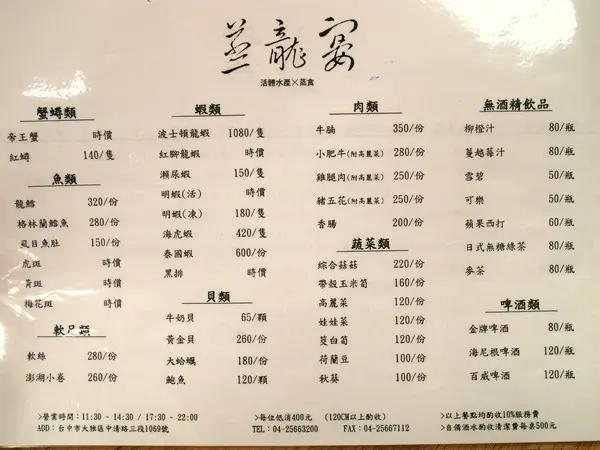 蒸龍宴
活體水產×蒸食
蟹蟳類
帝王蟹 時價
紅蟳 140/隻
魚類
龍鱈 320/份
格林蘭鱈魚 280/份
虱目魚肚 150/份
虎斑 時價
黃斑 時價
梅花斑 時價
軟足類
軟絲 280/份
澎湖小卷 260/份
蝦類
波士頓龍蝦 1080/隻
紅腳龍蝦 時價
瀨尿蝦 150/隻
明蝦(活) 時價
明蝦(凍) 180/隻
海虎蝦 420/隻
泰國蝦 600/份
黑排 時價
貝類
牛奶貝 65/顆
黃金貝 260/份
大蛤蠣 180/份
鮑魚 120/顆
肉類
牛腩 350/份
小肥牛(附高麗菜) 280/份
雞腿肉(附高麗菜) 250/份
豬五花(附高麗菜) 250/份
香腸 200/份
蔬菜類
綜合菇菇 220/份
帶殼玉米筍 160/份
高麗菜 120/份
娃娃菜 120/份
茭白筍 120/份
荷蘭豆 100/份
秋葵 100/份
無酒精飲品
柳橙汁 80/瓶
蔓越莓汁 80/瓶
雪碧 50/瓶
可樂 50/瓶
蘋果西打 60/瓶
日式無糖綠茶 80/瓶
麥茶 80/瓶
啤酒類
金牌啤酒 80/瓶
海尼根啤酒 120/瓶
百威啤酒 120/瓶
>營業時間：11:30 - 14:30 / 17:30 - 22:00
ADD: 台中市大雅區中清路三段1069號
>每位低消400元 (120CM以上酌收)
TEL: 04-25663200 FAX: 04-25667112
>以上餐點均酌收10%服務費
>自備酒水酌收清潔費每桌500元